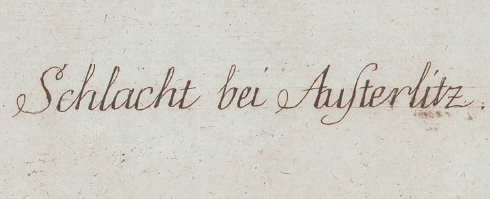 Schlacht bei Auſterlitz.